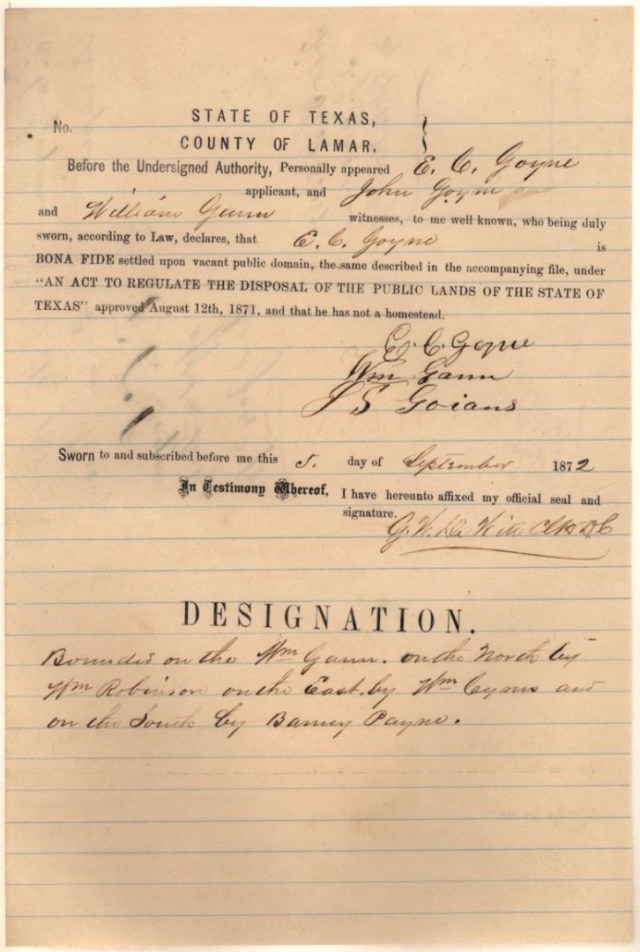 STATE OF TEXAS,
No.
COUNTY OF LAMAR.
Before the Undersigned Authority, Personally appeared E. C. Goyne
applicant, and John Goyne
and William Gann witnesses, to me well known, who being duly
sworn, according to Law, declares, that E. C. Goyne is
BONA FIDE settled upon vacant public domain, the same described in the accompanying file, under
"AN ACT TO REGULATE THE DISPOSAL OF THE PUBLIC LANDS OF THE STATE OF
TEXAS" approved August 12th, 1871, and that he has not a homestead.
E. C. Goyne
Wm Gann
J S Goians
Sworn to and subscribed before me this 5. day of September 1872
In Testimony Whereof, I have hereunto affixed my official seal and
signature.
G. W. DeWitt Clk
DESIGNATION.
Bounded on the Wm Gann. on the North by
Wm Robinson on the East. by Wm and
on the South by Barney Payne.